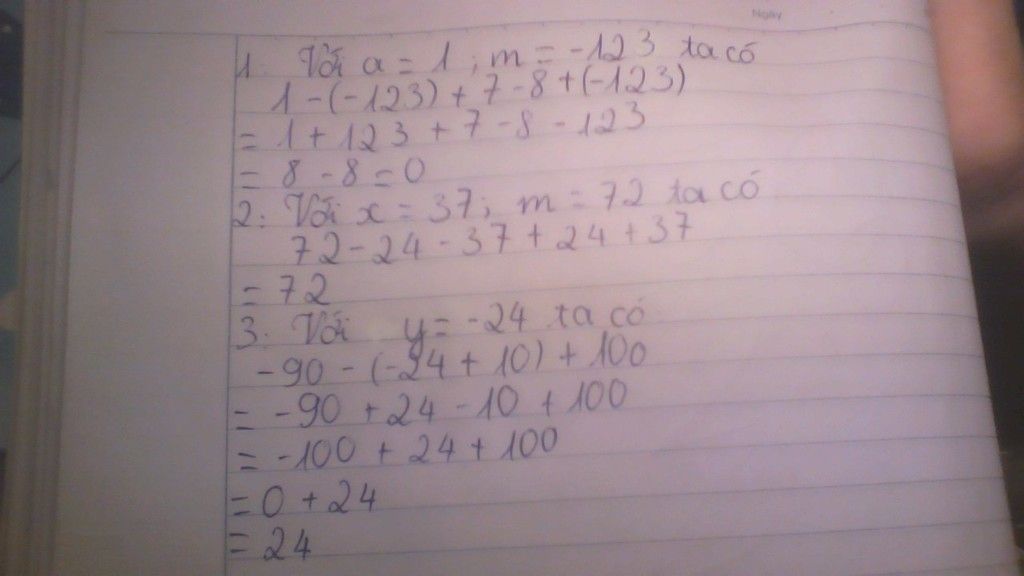 Ngày
1. Với a = 1 ; m = -123 ta có
1 - (-123) + 7 - 8 + (-123)
= 1 + 123 + 7 - 8 - 123
= 8 - 8 = 0
2. Với x = 37; m = 72 ta có
72 - 24 - 37 + 24 + 37
= 72
3. Với y = -24 ta có
-90 - (-24 + 10) + 100
= -90 + 24 - 10 + 100
= -100 + 24 + 100
= 0 + 24
= 24